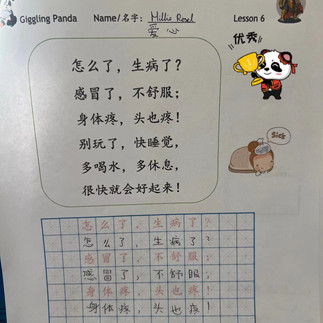 Giggling Panda Name/名字: Millie Lesson 6
爱心
优秀
怎么了，生病了？
感冒了，不舒服；
身体疼，头也疼！
别玩了，快睡觉，
多喝水，多休息，
很快就会好起来！
Sick
怎么了，生病了？
怎么了，生病了？
感冒了，不舒服；
感冒了，不舒服；
身体疼，头也疼！
身体疼，头也疼！